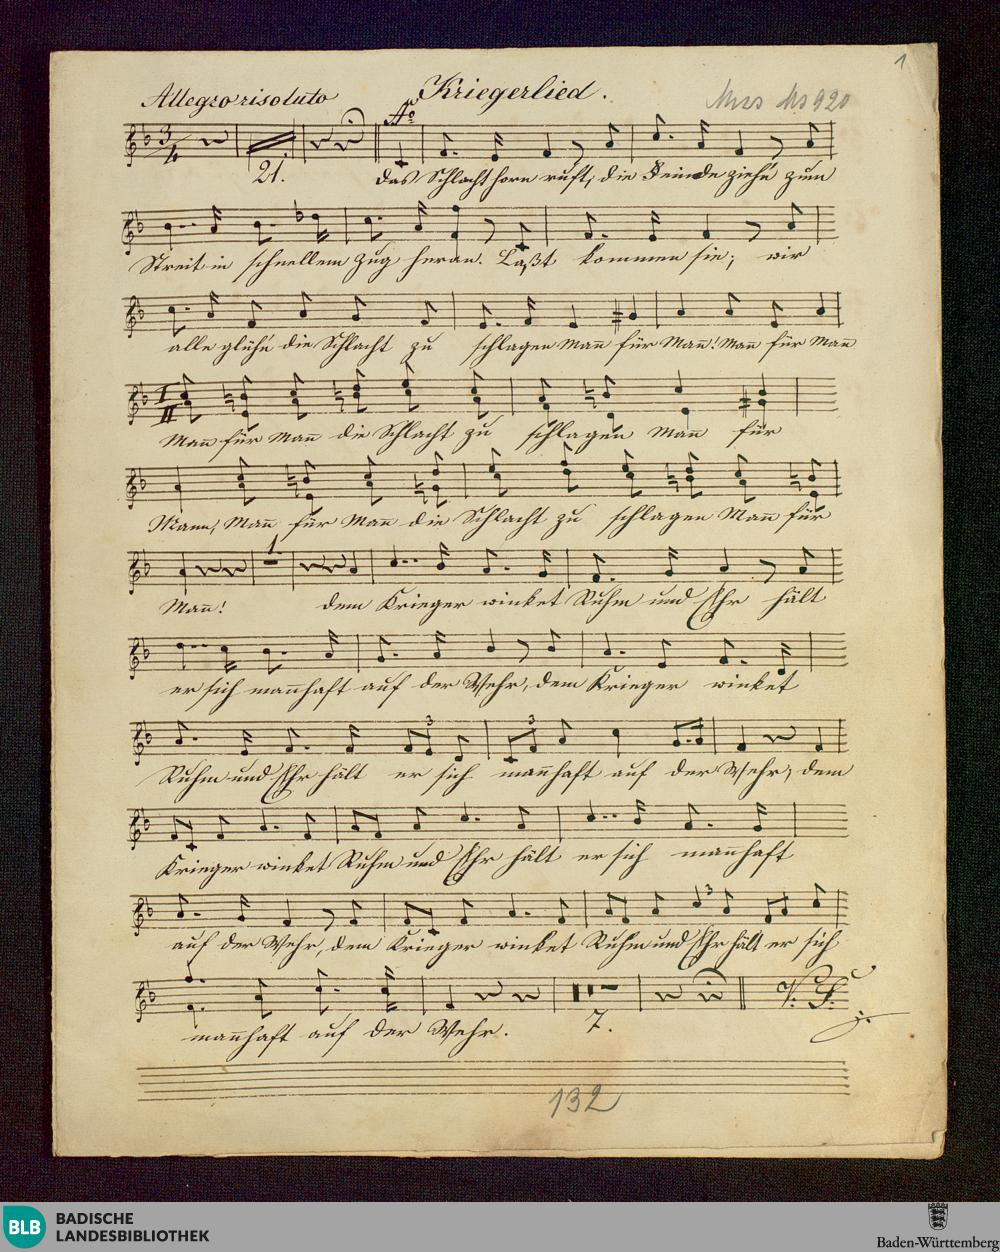 1
Allegro risoluto
Kriegerlied.
Mus Hs 920
Aº
3/4
21.
das Schlachthorn ruft, die Feinde zieh'n zum
Streit in schnellem Zug heran. Laßt kommen sie; wir
alle glüh'n die Schlacht zu schlagen Mañ für Mañ! Mañ für Mañ
I
II
Mañ für Mañ die Schlacht zu schlagen Mañ für
Mann, Mañ für Mañ die Schlacht zu schlagen Mañ für
1
Mañ! dem Krieger winket Ruhm und Ehr hält
er sich mañhaft auf der Wehr, dem Krieger winket
3 3
Ruhm und Ehr hält er sich mañhaft auf der Wehr, dem
Krieger winket Ruhm und Ehr hält er sich mañhaft
3
auf der Wehr, dem Krieger winket Ruhm und Ehr hält er sich
mañhaft auf der Wehr.
7.
V: S:
132
BLB
BADISCHE
LANDESBIBLIOTHEK
Baden-Württemberg